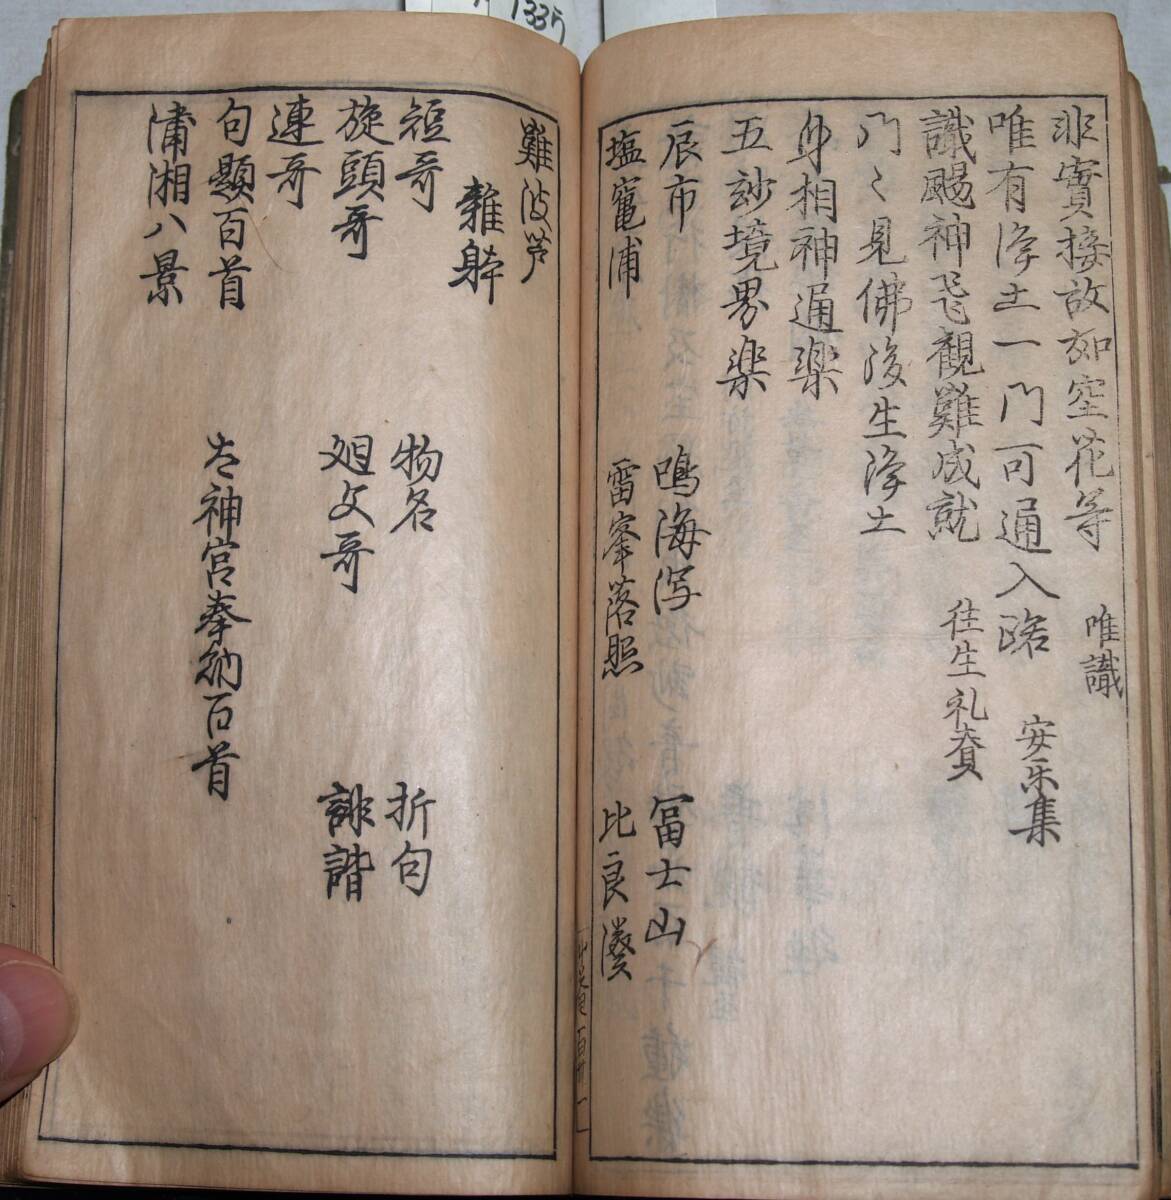 非實接故如空花等 唯識
唯有淨土一門可通入路 安楽集
識颺神飛觀難成就 往生礼賛
門々見佛後生浄土
身相神通楽
五妙境界楽
辰市 鳴海潟 冨士山
塩竃浦 雷峯落照 比良湊
難波芦
雜躰
短哥 物名 折句
旋頭哥 廻文哥 誹諧
連哥
句題百首 太神宮奉納百首
瀟湘八景
1335